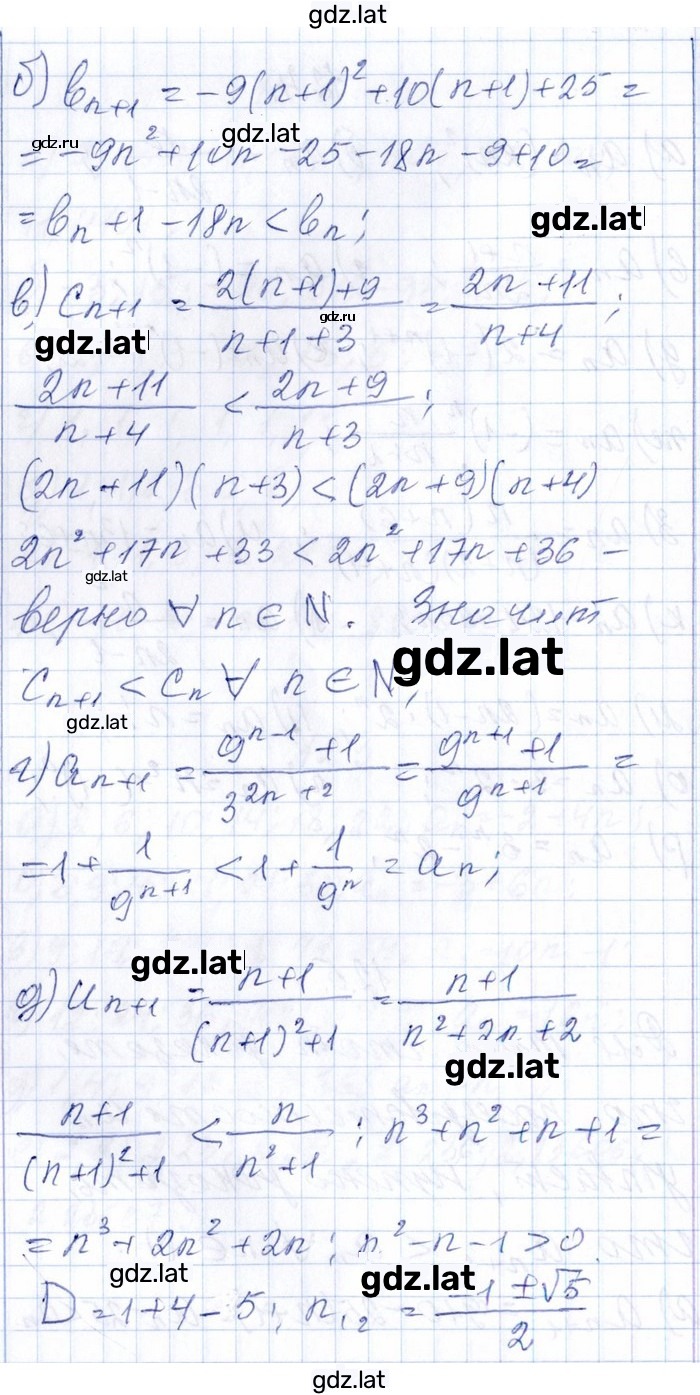 gdz.lat
б) bₙ₊₁ = -9(n+1)² + 10(n+1) + 25 =
gdz.ru gdz.lat
= -9n² + 10n - 25 - 18n - 9 + 10 =
= bₙ + 1 - 18n < bₙ;
gdz.lat
в) cₙ₊₁ = (2(n+1)+9)/(n+1+3) = (2n+11)/(n+4);
gdz.ru
gdz.lat
(2n+11)/(n+4) < (2n+9)/(n+3);
(2n+11)(n+3) < (2n+9)(n+4)
2n² + 17n + 33 < 2n² + 17n + 36 -
gdz.lat
верно ∀ n ∈ N. Значит
gdz.lat
cₙ₊₁ < cₙ ∀ n ∈ N;
gdz.lat
г) aₙ₊₁ = (9ⁿ⁻¹ + 1)/(3²ⁿ⁺²) = (9ⁿ⁺¹ + 1)/(9ⁿ⁺¹) =
= 1 + 1/(9ⁿ⁺¹) < 1 + 1/(9ⁿ) = aₙ;
gdz.lat
д) uₙ₊₁ = (n+1)/((n+1)²+1) = (n+1)/(n²+2n+2)
gdz.lat
(n+1)/((n+1)²+1) < n/(n²+1); n³ + n² + n + 1 =
= n³ + 2n² + 2n; n² - n - 1 > 0
gdz.lat gdz.lat
D = 1 + 4 - 5; n₁₂ = (-1 ± √5)/2
gdz.lat